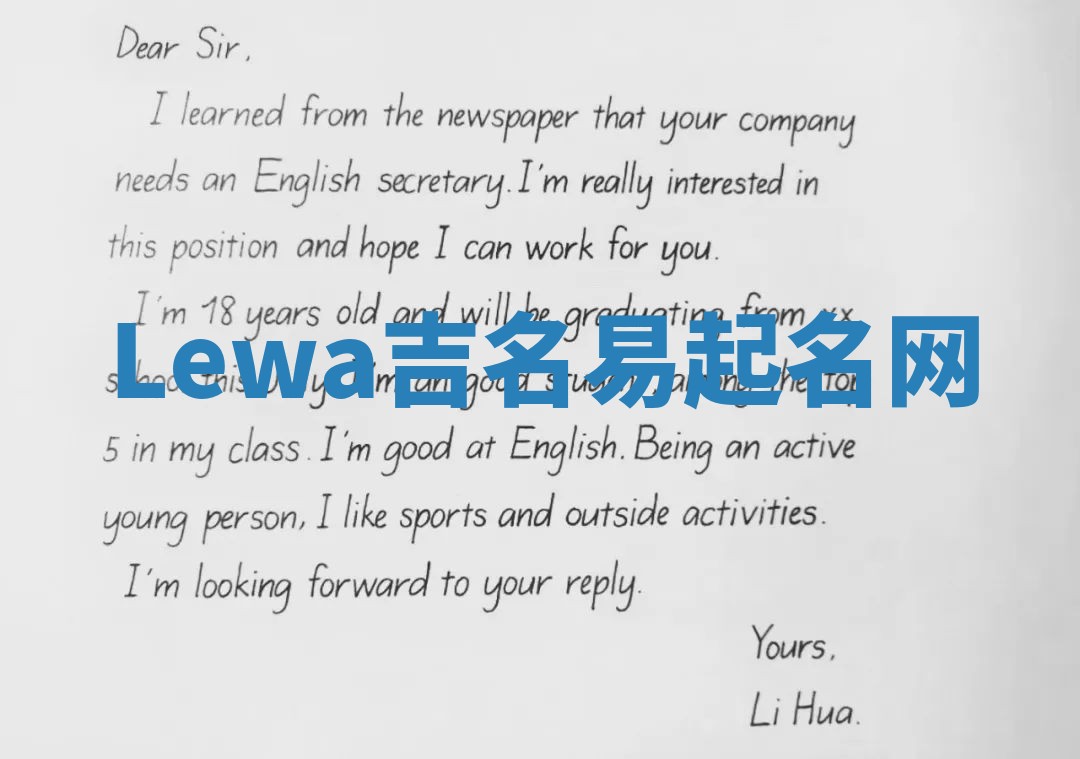 Dear Sir,
I learned from the newspaper that your company
needs an English secretary. I'm really interested in
this position and hope I can work for you.
I'm 18 years old and will be graduating from xx
school this July. I'm an good student, among the top
5 in my class. I'm good at English. Being an active
young person, I like sports and outside activities.
I'm looking forward to your reply.
Yours,
Li Hua.
Lewa吉名易起名网